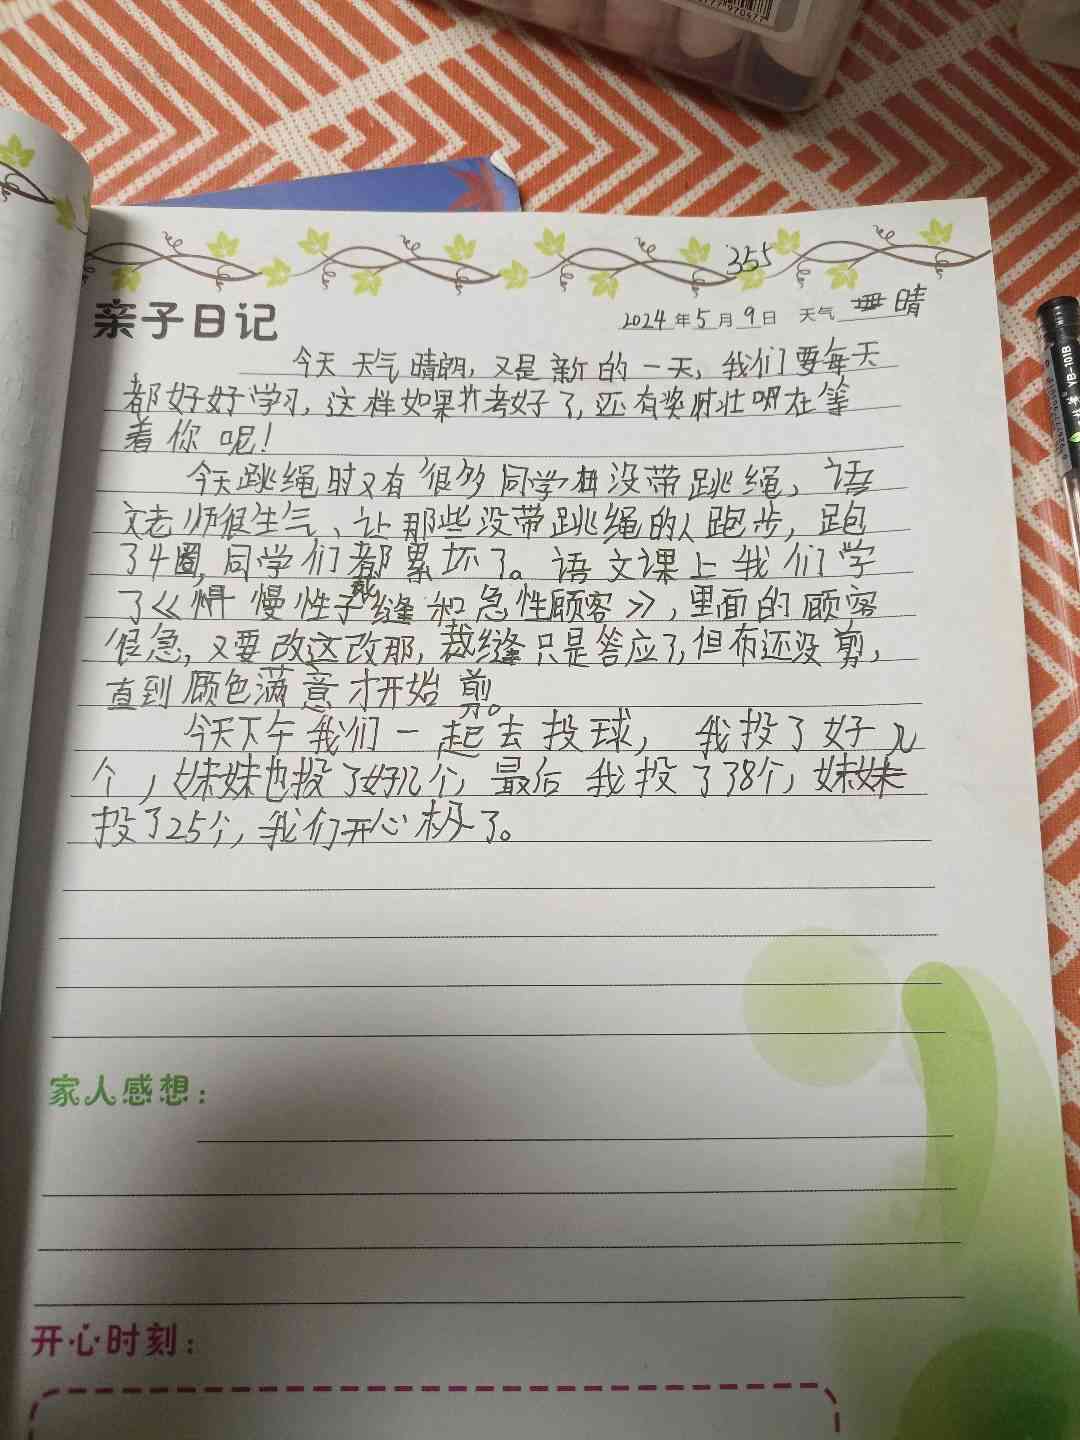 355
亲子日记
2024年5月9日 天气 晴
今天天气晴朗,又是新的一天,我们要每天
都好好学习,这样如果考好了,还有奖在等
着你呢!
今天跳绳时又有很多同学没带跳绳、语
文老师很生气、让那些没带跳绳的人跑步,跑
了4圈,同学们都累坏了。语文课上我们学
了《慢性子裁缝和急性顾客》,里面的顾客
很急,又要改这改那,裁缝只是答应了,但布还没剪,
直到顾色满意才开始剪。
今天下午我们一起去投球,我投了好几
个,妹妹也投了好几个,最后我投了38个,妹妹
投了25个,我们开心极了。
家人感想:
开心时刻:
YB-101B